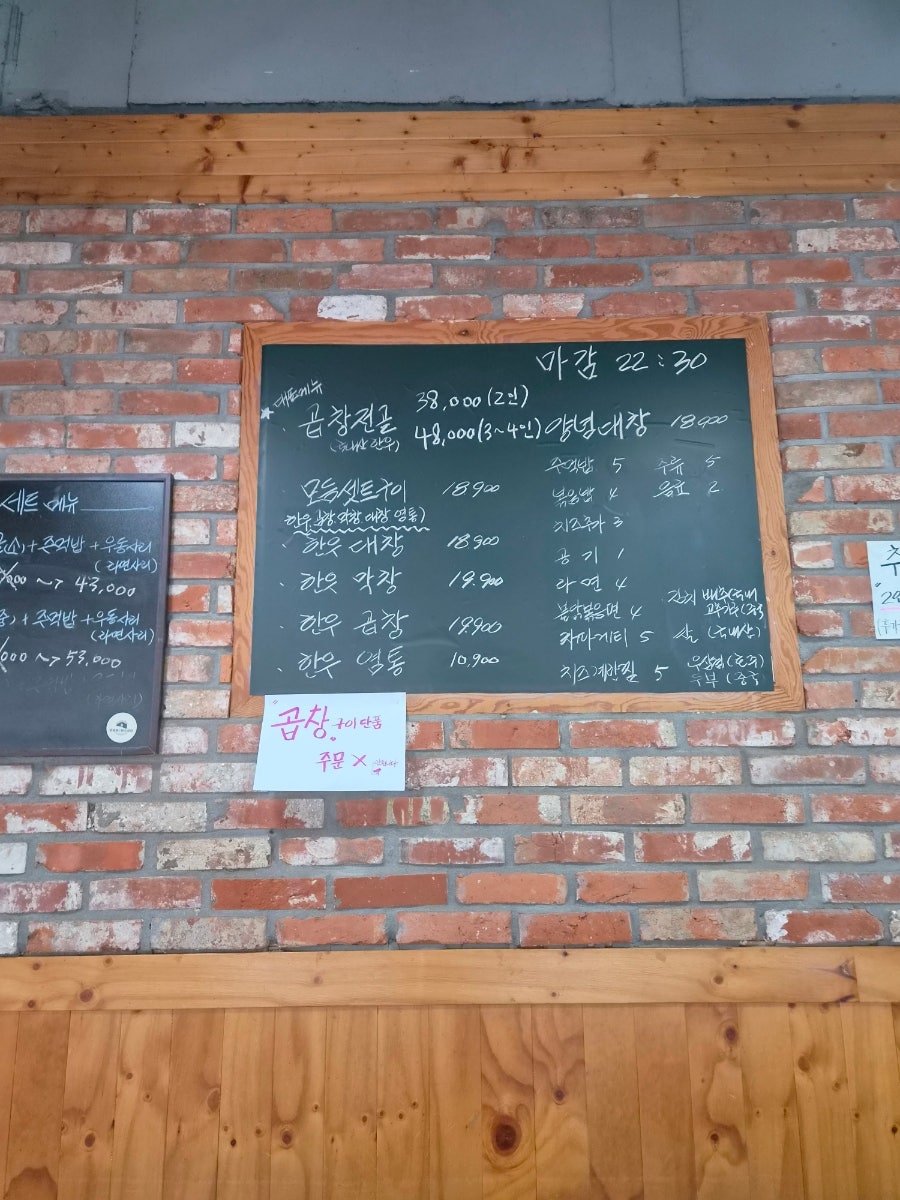 마감 22:30
대표메뉴
곱창전골 38,000(2인)
(국내산 한우) 48,000(3~4인)
모듬셋트구이 18,900
(한우, 곱창 막창 대창 염통)
한우 대창 18,900
한우 막창 19,900
한우 곱창 19,900
한우 염통 10,900
양념대창 18,000
주먹밥 5 주류 5
볶음밥 4 음료 2
치즈추가 3
공기 1
라면 4
불닭볶음면 4
짜파게티 5
치즈계란찜 5
김치 배추(국내
쌀 (국내산)
우삼겹(호주)
두부 (중국)
세트 메뉴
(소)+주먹밥+우동사리
(라면사리)
~> 43,000
+주먹밥+우동사리
(라면사리)
~> 53,000
"곱창" 구이단품
주문 X